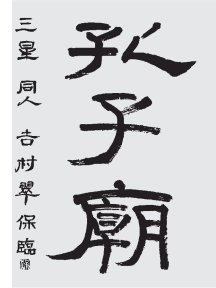 孔子廟
三星 同人 吉村翠保臨